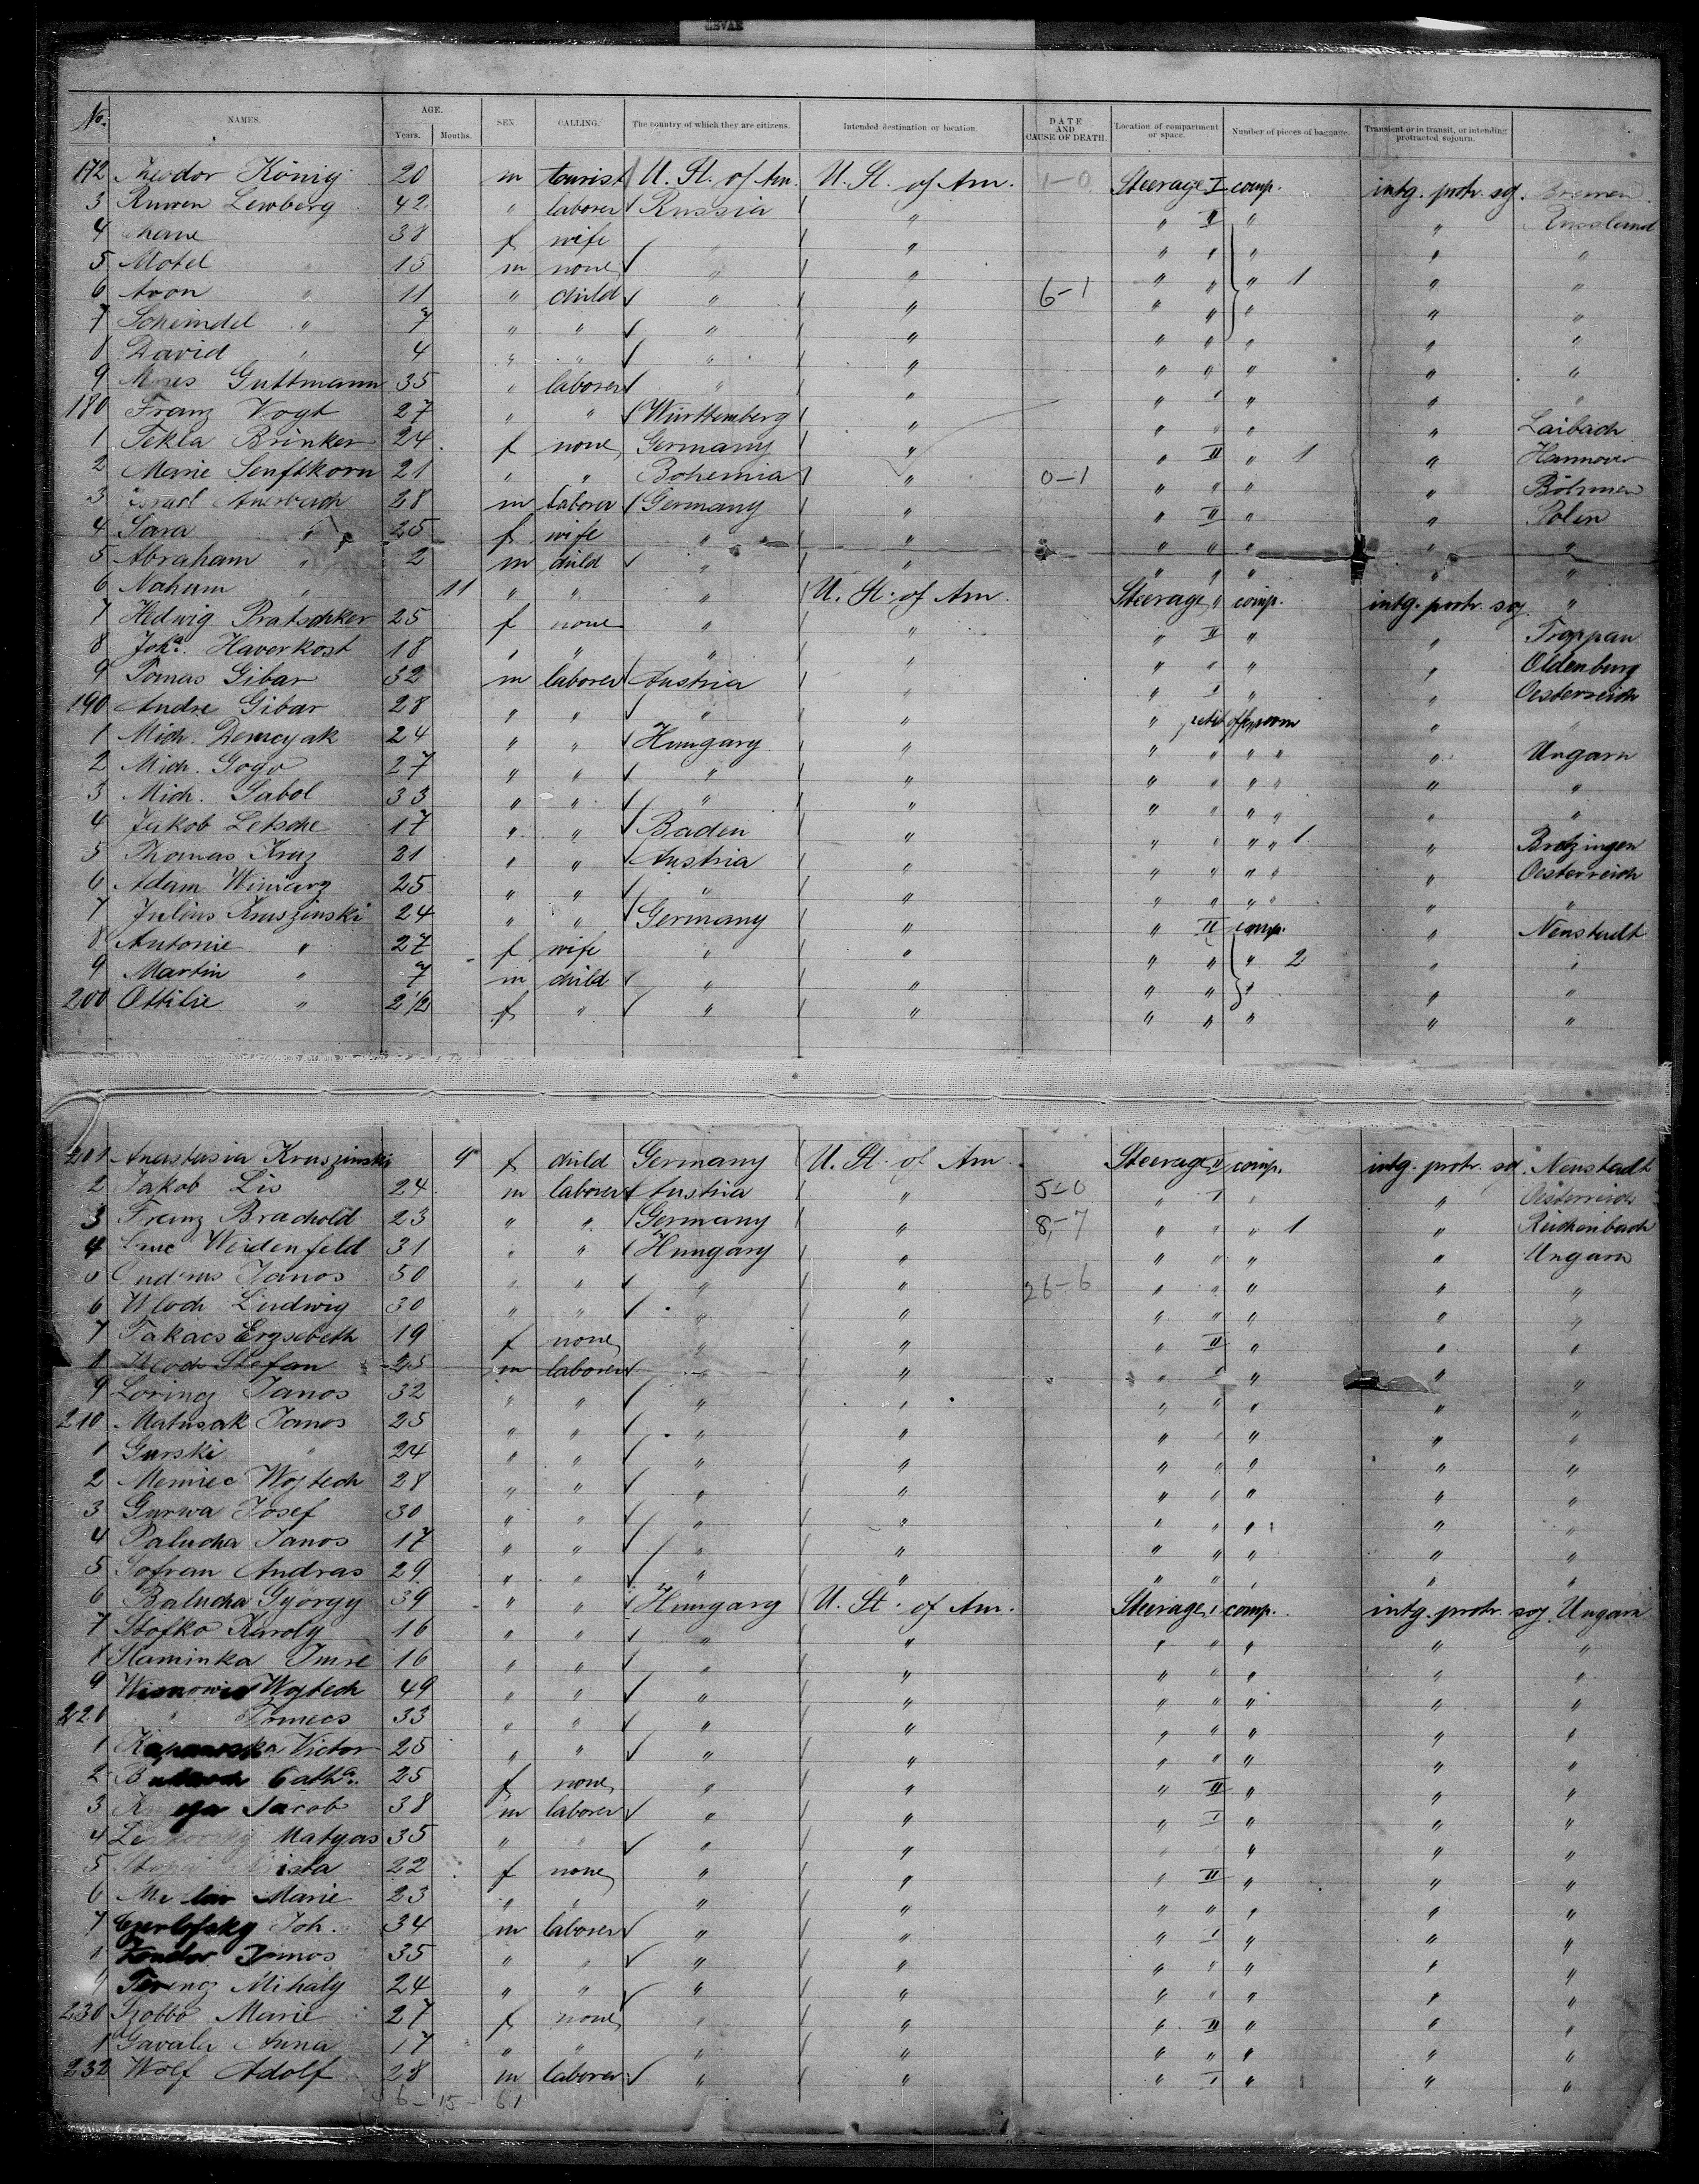 No. NAMES. AGE. Years. Months. SEX. CALLING. The country of which they are citizens. Intended destination or location. DATE AND CAUSE OF DEATH. Location of compartment or space. Number of pieces of baggage. Transient or in transit, or intending protracted sojourn.
172 Theodor König 20 m tourist U. St. of Am. U. St. of Am. 1-0 Steerage I comp. intg. protr. soj. Bremen
3 Ruwen Lewberg 42 " laborer Russia " " II " " Russland
4 38 f wife " " " " " " "
5 Motel " 15 m none " " " " " 1 " "
6 Aron " 11 " child " " 6-1 " " " " "
7 Scheindel " 7 " " " " " " " " "
8 David " 4 " " " " " " " " "
9 Moses Guttmann 35 " laborer " " " I " " "
180 Franz Vogt 27 " " Württemberg " " " " " Laibach
1 Tekla Brinker 24 f none Germany " " II " 1 " Hannover
2 Marie Senftkorn 21 " " Bohemia " 0-1 " " " " Böhmen
3 Israel Auerbach 28 m laborer Germany " " II " " Polen
4 Sara " 25 f wife " " " " " " "
5 Abraham " 2 m child " " " " " " "
6 Nahum " 11 " " " U. St. of Am. Steerage " comp. intg. protr. soj. "
7 Hedwig Pratschker 25 f none " " " II " " Troppau
8 Joha. Haverkost 18 " " " " " " " " Oldenburg
9 Tomas Gibar 32 m laborer Austria " " I " " Oesterreich
190 Andre Gibar 28 " " " " " room " "
1 Mich. Demcyak 24 " " Hungary " " " " " " Ungarn
2 Mich. Gogo 27 " " " " " " " " " "
3 Mich. Sabol 33 " " " " " " " " " "
4 Jakob Letsche 17 " " Baden " " " " " 1 " Brötzingen
5 Thomas Kruz 21 " " Austria " " " " " " Oesterreich
6 Adam Winiarz 25 " " " " " " " " " "
7 Julius Kruszinski 24 " " Germany " " II comp. " Neustadt
8 Antonie " 27 f wife " " " " " 2 " "
9 Martin " 7 m child " " " " " " "
200 Ottilie " 2 1/2 f " " " " " " " "
201 Anastasia Kruszinski 9 f child Germany U. St. of Am. Steerage II comp. intg. protr. soj. Neustadt
2 Jakob Lis 24 m laborer Austria " 5-0 " I " " Oesterreich
3 Franz Brachold 23 " " Germany " 8-7 " " " 1 " Reichenbach
4 Weidenfeld 31 " " Hungary " " " " " Ungarn
5 Janos 50 " " " " 26-6 " " " " "
6 Wloch Ludwig 30 " " " " " " " " "
7 Takacs Erzsebeth 19 f none " " " II " " "
8 Wloch Stefan 25 m laborer " " " I " " "
9 Lorincz Janos 32 " " " " " " " " "
210 Matusak Janos 25 " " " " " " " " "
1 Gurski " 24 " " " " " " " " "
2 Memiec Wojtech 28 " " " " " " " " "
3 Gurwa Josef 30 " " " " " " " " "
4 Palucha Janos 17 " " " " " " " " "
5 Sofran Andras 29 " " " " " " " " "
6 Balucha György 39 " " Hungary U. St. of Am. Steerage I comp. intg. protr. soj. Ungarn
7 Stofko Karoly 16 " " " " " " " " "
8 Slaminka Imre 16 " " " " " " " " "
9 Wojtech 49 " " " " " " " " "
220 " 33 " " " " " " " " "
1 Victor 25 " " " " " " " " "
2 Catha. 25 f none " " " II " " "
3 Jacob 38 m laborer " " " I " " "
4 Leskovsky Matyas 35 " " " " " " " "
5 22 f none " " " II " " "
6 Marie 23 " " " " " " " " "
7 Joh. 34 m laborer " " " I " " "
8 Janos 35 " " " " " " " " "
9 Ferencz Mihaly 24 " " " " " " " " "
230 Szobbo Marie 27 f none " " " II " " "
1 Gavala Anna 17 " " " " " " " " "
232 Wolf Adolf 28 m laborer " " " I " " "
6 - 15 - 61